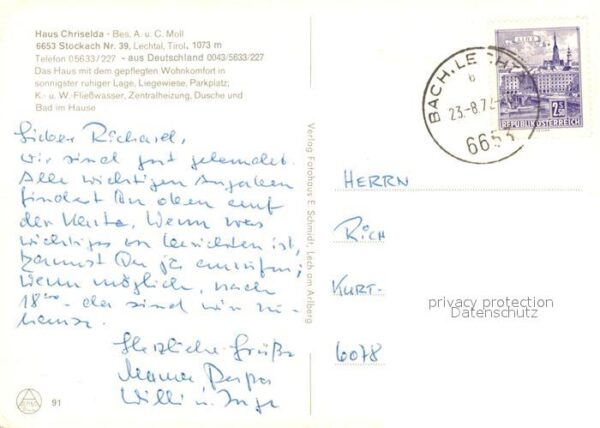 Haus Chriselda - Bes. A. u. C. Moll
6653 Stockach Nr. 39, Lechtal, Tirol, 1073 m
Telefon 05633/227 - aus Deutschland 0043/5633/227
Das Haus mit dem gepflegten Wohnkomfort in
sonnigster ruhiger Lage, Liegewiese, Parkplatz;
K.- u. W.-Fließwasser, Zentralheizung, Dusche und
Bad im Hause
Lieber Richard,
wir sind gut gelandet.
Alle wichtigen Angaben
findest Du oben auf
der Karte. Wenn was
wichtiges zu berichten ist,
kannst Du ja anrufen;
wenn möglich, nach
18 00 - da sind wir zu-
hause.
Herzliche Grüße
Mama Papa
Willi u. Inge
91
Verlag Fotohaus E. Schmidt, Lech am Arlberg
BACH, LECHTAL
23.-8.72
6653
LINZ
2.50
REPUBLIK ÖSTERREICH
HERRN
RICH
KURT-
6078
privacy protection
Datenschutz